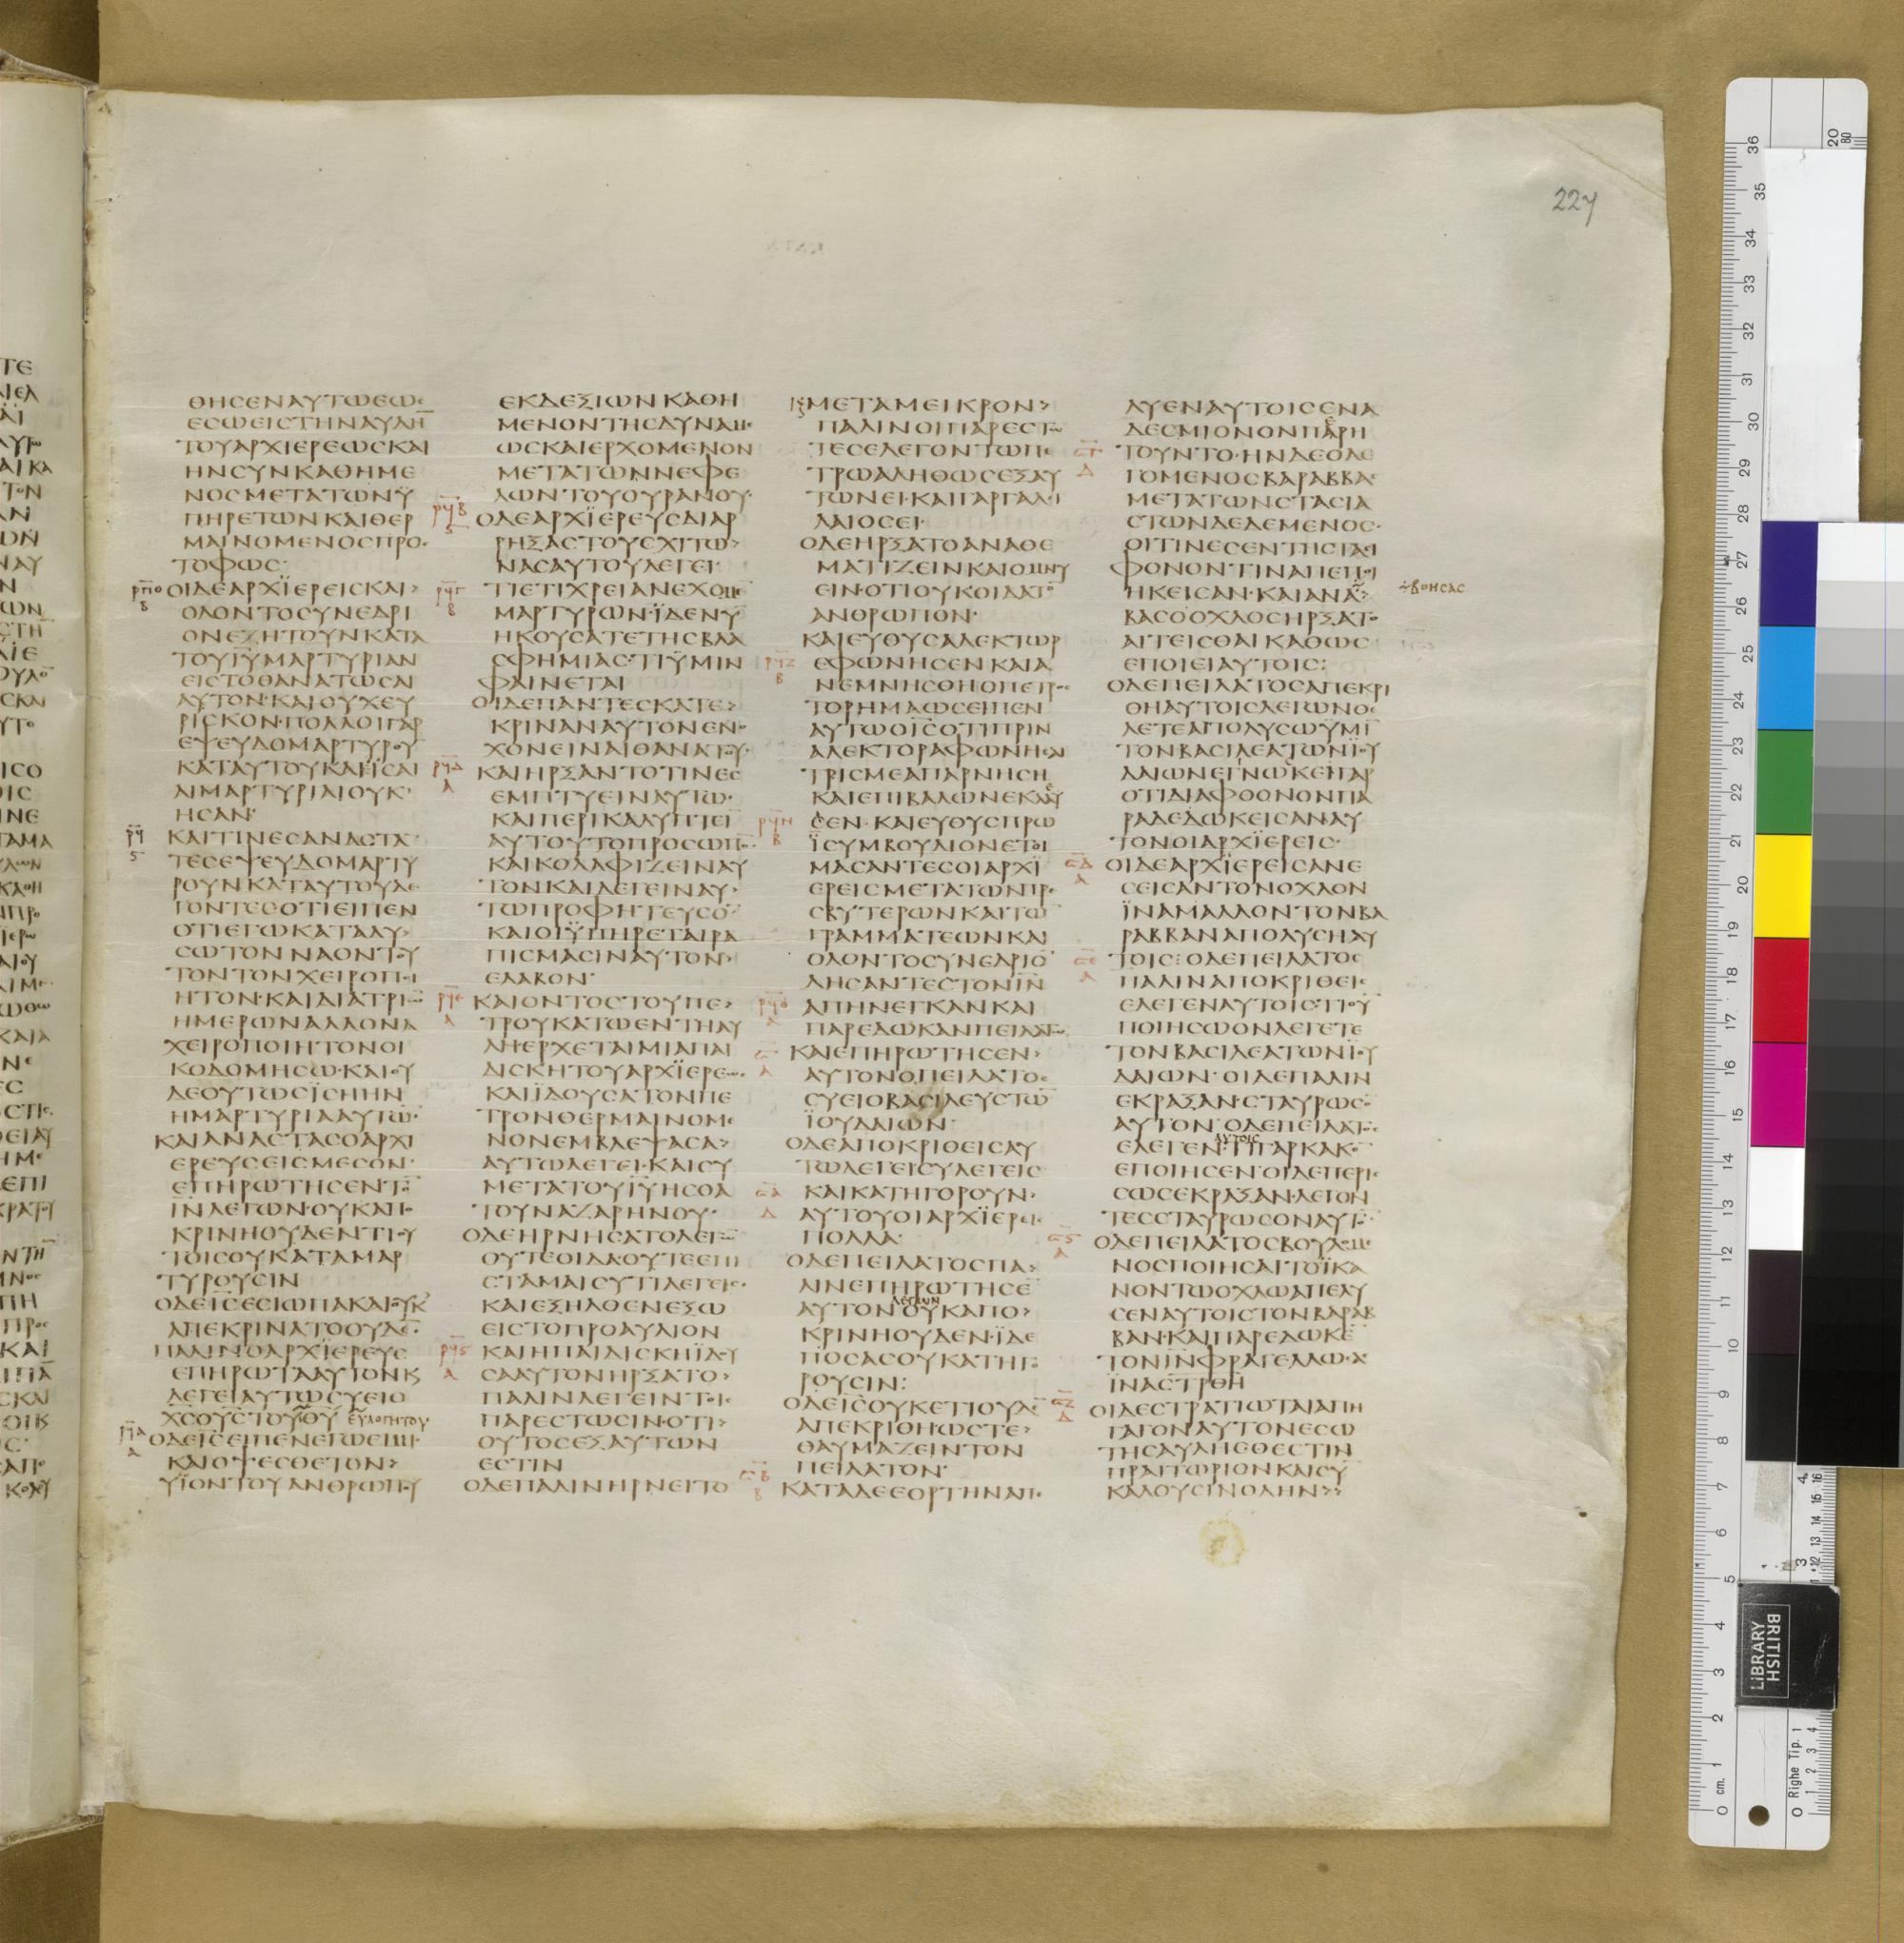 227
ΘΗCΕΝΑΥΤΩΕΩC
ΕCΩΕΙCΤΗΝΑΥΛΗ
ΤΟΥΑΡΧΙΕΡΕΩCΚΑΙ
ΗΝCΥΝΚΑΘΗΜΕ
ΝΟCΜΕΤΑΤΩΝΫ
ΠΗΡΕΤΩΝΚΑΙΘΕΡ
ΜΑΙΝΟΜΕΝΟCΠΡΟC
ΤΟΦΩC
ΟΙΔΕΑΡΧΪΕΡΕΙCΚΑΙ>
ΟΛΟΝΤΟCΥΝΕΔΡΙ
ΟΝΕΖΗΤΟΥΝΚΑΤΑ
ΤΟΥΙΥΜΑΡΤΥΡΙΑΝ
ΕΙCΤΟΘΑΝΑΤΩCΑΙ
ΑΥΤΟΝ·ΚΑΙΟΥΧΕΥ
ΡΙCΚΟΝ·ΠΟΛΛΟΙΓΑΡ
ΕΨΕΥΔΟΜΑΡΤΥΡΟΥ
ΚΑΤΑΥΤΟΥΚΑΙΕΙCΑΙ
ΑΙΜΑΡΤΥΡΙΑΙΟΥΚ
ΗCΑΝ·
ΚΑΙΤΙΝΕCΑΝΑCΤΑ
ΤΕCΕΨΕΥΔΟΜΑΡΤΥ
ΡΟΥΝΚΑΤΑΥΤΟΥΛΕ
ΓΟΝΤΕCΟΤΙΕΙΠΕΝ
ΟΤΙΕΓΩΚΑΤΑΛΥ>
CΩΤΟΝΝΑΟΝΤΟΥ
ΤΟΝΤΟΝΧΕΙΡΟΠΟΙ
ΗΤΟΝ·ΚΑΙΔΙΑΤΡΙΩ
ΗΜΕΡΩΝΑΛΛΟΝΑ
ΧΕΙΡΟΠΟΙΗΤΟΝΟΙ
ΚΟΔΟΜΗCΩ·ΚΑΙΟΥ
ΔΕΟΥΤΩCΪCΗΗΝ
ΗΜΑΡΤΥΡΙΑΑΥΤΩ
ΚΑΙΑΝΑCΤΑCΟΑΡΧΙ
ΕΡΕΥCΕΙCΜΕCΟΝ·
ΕΠΗΡΩΤΗCΕΝΤΟ
ΙΝΛΕΓΩΝ·ΟΥΚΑΠΟ
ΚΡΙΝΗΟΥΔΕΝΤΙΟΥ
ΤΟΙCΟΥΚΑΤΑΜΑΡ
ΤΥΡΟΥCΙΝ
ΟΔΕΙCΕCΙΩΠΑΚΑΙΟΥΚ
ΑΠΕΚΡΙΝΑΤΟΟΥΔΕ
ΠΑΛΙΝΟΑΡΧΙΕΡΕΥC
ΕΠΗΡΩΤΑΑΥΤΟΝΚ
ΛΕΓΕΙΑΥΤΩCΥΕΙΟ
ΧCΟΥCΤΟΥΘΥ ΕΥΛΟΓΗΤΟΥ
ΟΔΕΙCΕΙΠΕΝΕΓΩΕΙΜΙ·
ΚΑΙΟΨΕCΘΕΤΟΝ>
ΥΪΟΝΤΟΥΑΝΘΡΩΠΟΥ
ΕΚΔΕΞΙΩΝΚΑΘΗ
ΜΕΝΟΝΤΗCΔΥΝΑΜΕ
ΩCΚΑΙΕΡΧΟΜΕΝΟΝ
ΜΕΤΑΤΩΝΝΕΦΕ
ΛΩΝΤΟΥΟΥΡΑΝΟΥ·
ΟΔΕΑΡΧΪΕΡΕΥCΔΙΑΡ
ΡΗΞΑCΤΟΥCΧΙΤΩ>
ΝΑCΑΥΤΟΥΛΕΓΕΙ·
ΤΙΕΤΙΧΡΕΙΑΝΕΧΟΜΕ
ΜΑΡΤΥΡΩΝ·ΪΔΕΝΥ
ΗΚΟΥCΑΤΕΤΗCΒΛΑ
CΦΗΜΙΑC·ΤΙΫΜΙΝ
ΦΑΙΝΕΤΑΙ
ΟΙΔΕΠΑΝΤΕCΚΑΤΕ>
ΚΡΙΝΑΝΑΥΤΟΝΕΝΟ
ΧΟΝΕΙΝΑΙΘΑΝΑΤΟΥ·
ΚΑΙΗΡΞΑΝΤΟΤΙΝΕC
ΕΜΠΤΥΕΙΝΑΥΤΩ·
ΚΑΙΠΕΡΙΚΑΛΥΠΤΕΙ
ΑΥΤΟΥΤΟΠΡΟCΩΠΟ
ΚΑΙΚΟΛΑΦΙΖΕΙΝΑΥ
ΤΟΝΚΑΙΛΕΓΕΙΝΑΥ>
ΤΩΠΡΟΦΗΤΕΥCΟ
ΚΑΙΟΙΫΠΗΡΕΤΑΙΡΑ
ΠΙCΜΑCΙΝΑΥΤΟΝ>
ΕΛΑΒΟΝ
ΚΑΙΟΝΤΟCΤΟΥΠΕ>
ΤΡΟΥΚΑΤΩΕΝΤΗΑΥ
ΛΗ·ΕΡΧΕΤΑΙΜΙΑΠΑΙ
ΔΙCΚΗΤΟΥΑΡΧΪΕΡΕΩ
ΚΑΙΪΔΟΥCΑΤΟΝΠΕ
ΤΡΟΝΘΕΡΜΑΙΝΟΜΕ
ΝΟΝΕΜΒΛΕΨΑCΑ>
ΑΥΤΩΛΕΓΕΙ·ΚΑΙCΥ
ΜΕΤΑΤΟΥΙΥΗCΘΑ
ΤΟΥΝΑΖΑΡΗΝΟΥ·
ΟΔΕΗΡΝΗCΑΤΟΛΕΓΩ
ΟΥΤΕΟΙΔΑΟΥΤΕΕΠΙ
CΤΑΜΑΙCΥΤΙΛΕΓΕΙC
ΚΑΙΕΞΗΛΘΕΝΕΞΩ
ΕΙCΤΟΠΡΟΑΥΛΙΟΝ
ΚΑΙΗΠΑΙΔΙCΚΗΪΔΟΥ
CΑΑΥΤΟΝΗΡΞΑΤΟ>
ΠΑΛΙΝΛΕΓΕΙΝΤΟΙC
ΠΑΡΕCΤΩCΙΝ·ΟΤΙ>
ΟΥΤΟCΕΞΑΥΤΩΝ
ΕCΤΙΝ
ΟΔΕΠΑΛΙΝΗΡΝΕΙΤΟ
ΚΜΕΤΑΜΕΙΚΡΟΝ>
ΠΑΛΙΝΟΙΠΑΡΕCΤΩ
ΤΕCΕΛΕΓΟΝΤΩΠΕ
ΤΡΩΑΛΗΘΩCΕΞΑΥ
ΤΩΝΕΙ·ΚΑΙΓΑΡΓΑΛΙ
ΛΑΙΟCΕΙ·
ΟΔΕΗΡΞΑΤΟΑΝΑΘΕ
ΜΑΤΙΖΕΙΝΚΑΙΟΜΝΥ
ΕΙΝ·ΟΤΙΟΥΚΟΙΔΑΤΟ
ΑΝΘΡΩΠΟΝ·
ΚΑΙΕΥΘΥCΑΛΕΚΤΩΡ
ΕΦΩΝΗCΕΝΚΑΙΑ
ΝΕΜΝΗCΘΗΟΠΕΤΡΟC
ΤΟΡΗΜΑΩCΕΙΠΕΝ
ΑΥΤΩΟΙCΟΤΙΠΡΙΝ
ΑΛΕΚΤΟΡΑΦΩΝΗCΑΙ
ΤΡΙCΜΕΑΠΑΡΝΗCΗ
ΚΑΙΕΠΙΒΑΛΩΝΕΚΛΑΥ
CΕΝ·ΚΑΙΕΥΘΥCΠΡΩ
ΪCΥΜΒΟΥΛΙΟΝΕΤΟΙ
ΜΑCΑΝΤΕCΟΙΑΡΧΪ
ΕΡΕΙCΜΕΤΑΤΩΝΠΡΕ
CΒΥΤΕΡΩΝΚΑΙΤΩ
ΓΡΑΜΜΑΤΕΩΝΚΑΙ
ΟΛΟΝΤΟCΥΝΕΔΡΙΟ
ΔΗCΑΝΤΕCΤΟΝΙΝ
ΑΠΗΝΕΓΚΑΝΚΑΙ
ΠΑΡΕΔΩΚΑΝΠΕΙΛΑΤΩ
ΚΑΙΕΠΗΡΩΤΗCΕΝ>
ΑΥΤΟΝΟΠΕΙΛΑΤΟC
CΥΕΙΟΒΑCΙΛΕΥCΤΩ
ΪΟΥΔΑΙΩΝ·
ΟΔΕΑΠΟΚΡΙΘΕΙCΑΥ
ΤΩΛΕΓΕΙCΥΛΕΓΕΙC
ΚΑΙΚΑΤΗΓΟΡΟΥΝ·
ΑΥΤΟΥΟΙΑΡΧΪΕΡΕΙC
ΠΟΛΛΑ·
ΟΔΕΠΕΙΛΑΤΟCΠΑ>
ΛΙΝΕΠΗΡΩΤΗCΕ
ΛΕΓΩΝ
ΑΥΤΟΝΟΥΚΑΠΟ>
ΚΡΙΝΗΟΥΔΕΝ·ΪΔΕ
ΠΟCΑCΟΥΚΑΤΗΓΟ
ΡΟΥCΙΝ:
ΟΔΕΙCΟΥΚΕΤΙΟΥΔΕ
ΑΠΕΚΡΙΘΗΩCΤΕ>
ΘΑΥΜΑΖΕΙΝΤΟΝ
ΠΕΙΛΑΤΟΝ·
ΚΑΤΑΔΕΕΟΡΤΗΝΑΠΕ
ΛΥΕΝΑΥΤΟΙCΕΝΑ
ΔΕCΜΙΟΝΟΝΠΑΡΗ
ΤΟΥΝΤΟ·ΗΝΔΕΟΛΕ
ΓΟΜΕΝΟCΒΑΡΑΒΒΑC
ΜΕΤΑΤΩΝCΤΑCΙΑ
CΤΩΝΔΕΔΕΜΕΝΟC·
ΟΙΤΙΝΕCΕΝΤΗCΤΑCΙ
ΦΟΝΟΝΤΙΝΑΠΕΠΟΙ
ΗΚΕΙCΑΝ·ΚΑΙΑΝΑ>
ΒΟΗCΑC
ΒΑCΟΟΧΛΟCΗΡΞΑΤΟ
ΑΙΤΕΙCΘΑΙΚΑΘΩC
ΕΠΟΙΕΙΑΥΤΟΙC:
ΟΔΕΠΕΙΛΑΤΟCΑΠΕΚΡΙ
ΘΗΑΥΤΟΙCΛΕΓΩΝΘΕ
ΛΕΤΕΑΠΟΛΥCΩΫΜΙ
ΤΟΝΒΑCΙΛΕΑΤΩΝΪΟΥ
ΔΑΙΩΝΕΓΝΩΚΕΙΓΑΡ
ΟΤΙΔΙΑΦΘΟΝΟΝΠΑ
ΡΑΔΕΔΩΚΕΙCΑΝΑΥ
ΤΟΝΟΙΑΡΧΪΕΡΕΙC·
ΟΙΔΕΑΡΧΪΕΡΕΙCΑΝΕ
CΕΙCΑΝΤΟΝΟΧΛΟΝ
ΪΝΑΜΑΛΛΟΝΤΟΝΒΑ
ΡΑΒΒΑΝΑΠΟΛΥCΗΑΥ
ΤΟΙC:ΟΔΕΠΕΙΛΑΤΟC
ΠΑΛΙΝΑΠΟΚΡΙΘΕΙC
ΕΛΕΓΕΝΑΥΤΟΙC·ΤΙΟΥ
ΠΟΙΗCΩΟΝΛΕΓΕΤΕ
ΤΟΝΒΑCΙΛΕΑΤΩΝΪΟΥ
ΔΑΙΩΝ·ΟΙΔΕΠΑΛΙΝ
ΕΚΡΑΞΑΝ·CΤΑΥΡΩCΟ
ΑΥΤΟΝ·ΟΔΕΠΕΙΛΑΤΟ
ΑΥΤΟΙC
ΕΛΕΓΕΝ·ΤΙΓΑΡΚΑΚΟ
ΕΠΟΙΗCΕΝ·ΟΙΔΕΠΕΡΙC
CΩCΕΚΡΑΞΑΝ·ΛΕΓΟΝ
ΤΕCCΤΑΥΡΩCΟΝΑΥΤΟ
ΟΔΕΠΕΙΛΑΤΟCΒΟΥΛΟΜΕ
ΝΟCΠΟΙΗCΑΙΤΟΪΚΑ
ΝΟΝΤΩΟΧΛΩΑΠΕΛΥ
CΕΝΑΥΤΟΙCΤΟΝΒΑΡΑΒ
ΒΑΝ·ΚΑΙΠΑΡΕΔΩΚΕ
ΤΟΝΙΝΦΡΑΓΕΛΛΩCΑ
ΪΝΑCΤΡΘΗ
ΟΙΔΕCΤΡΑΤΙΩΤΑΙΑΠΗ
ΓΑΓΟΝΑΥΤΟΝΕCΩ
ΤΗCΑΥΛΗCΘΕCΤΙΝ
ΠΡΑΙΤΩΡΙΟΝΚΑΙCΥ
ΚΑΛΟΥCΙΝΟΛΗΝ>>
BRITISH
LIBRARY
cm.
Righe Tip.